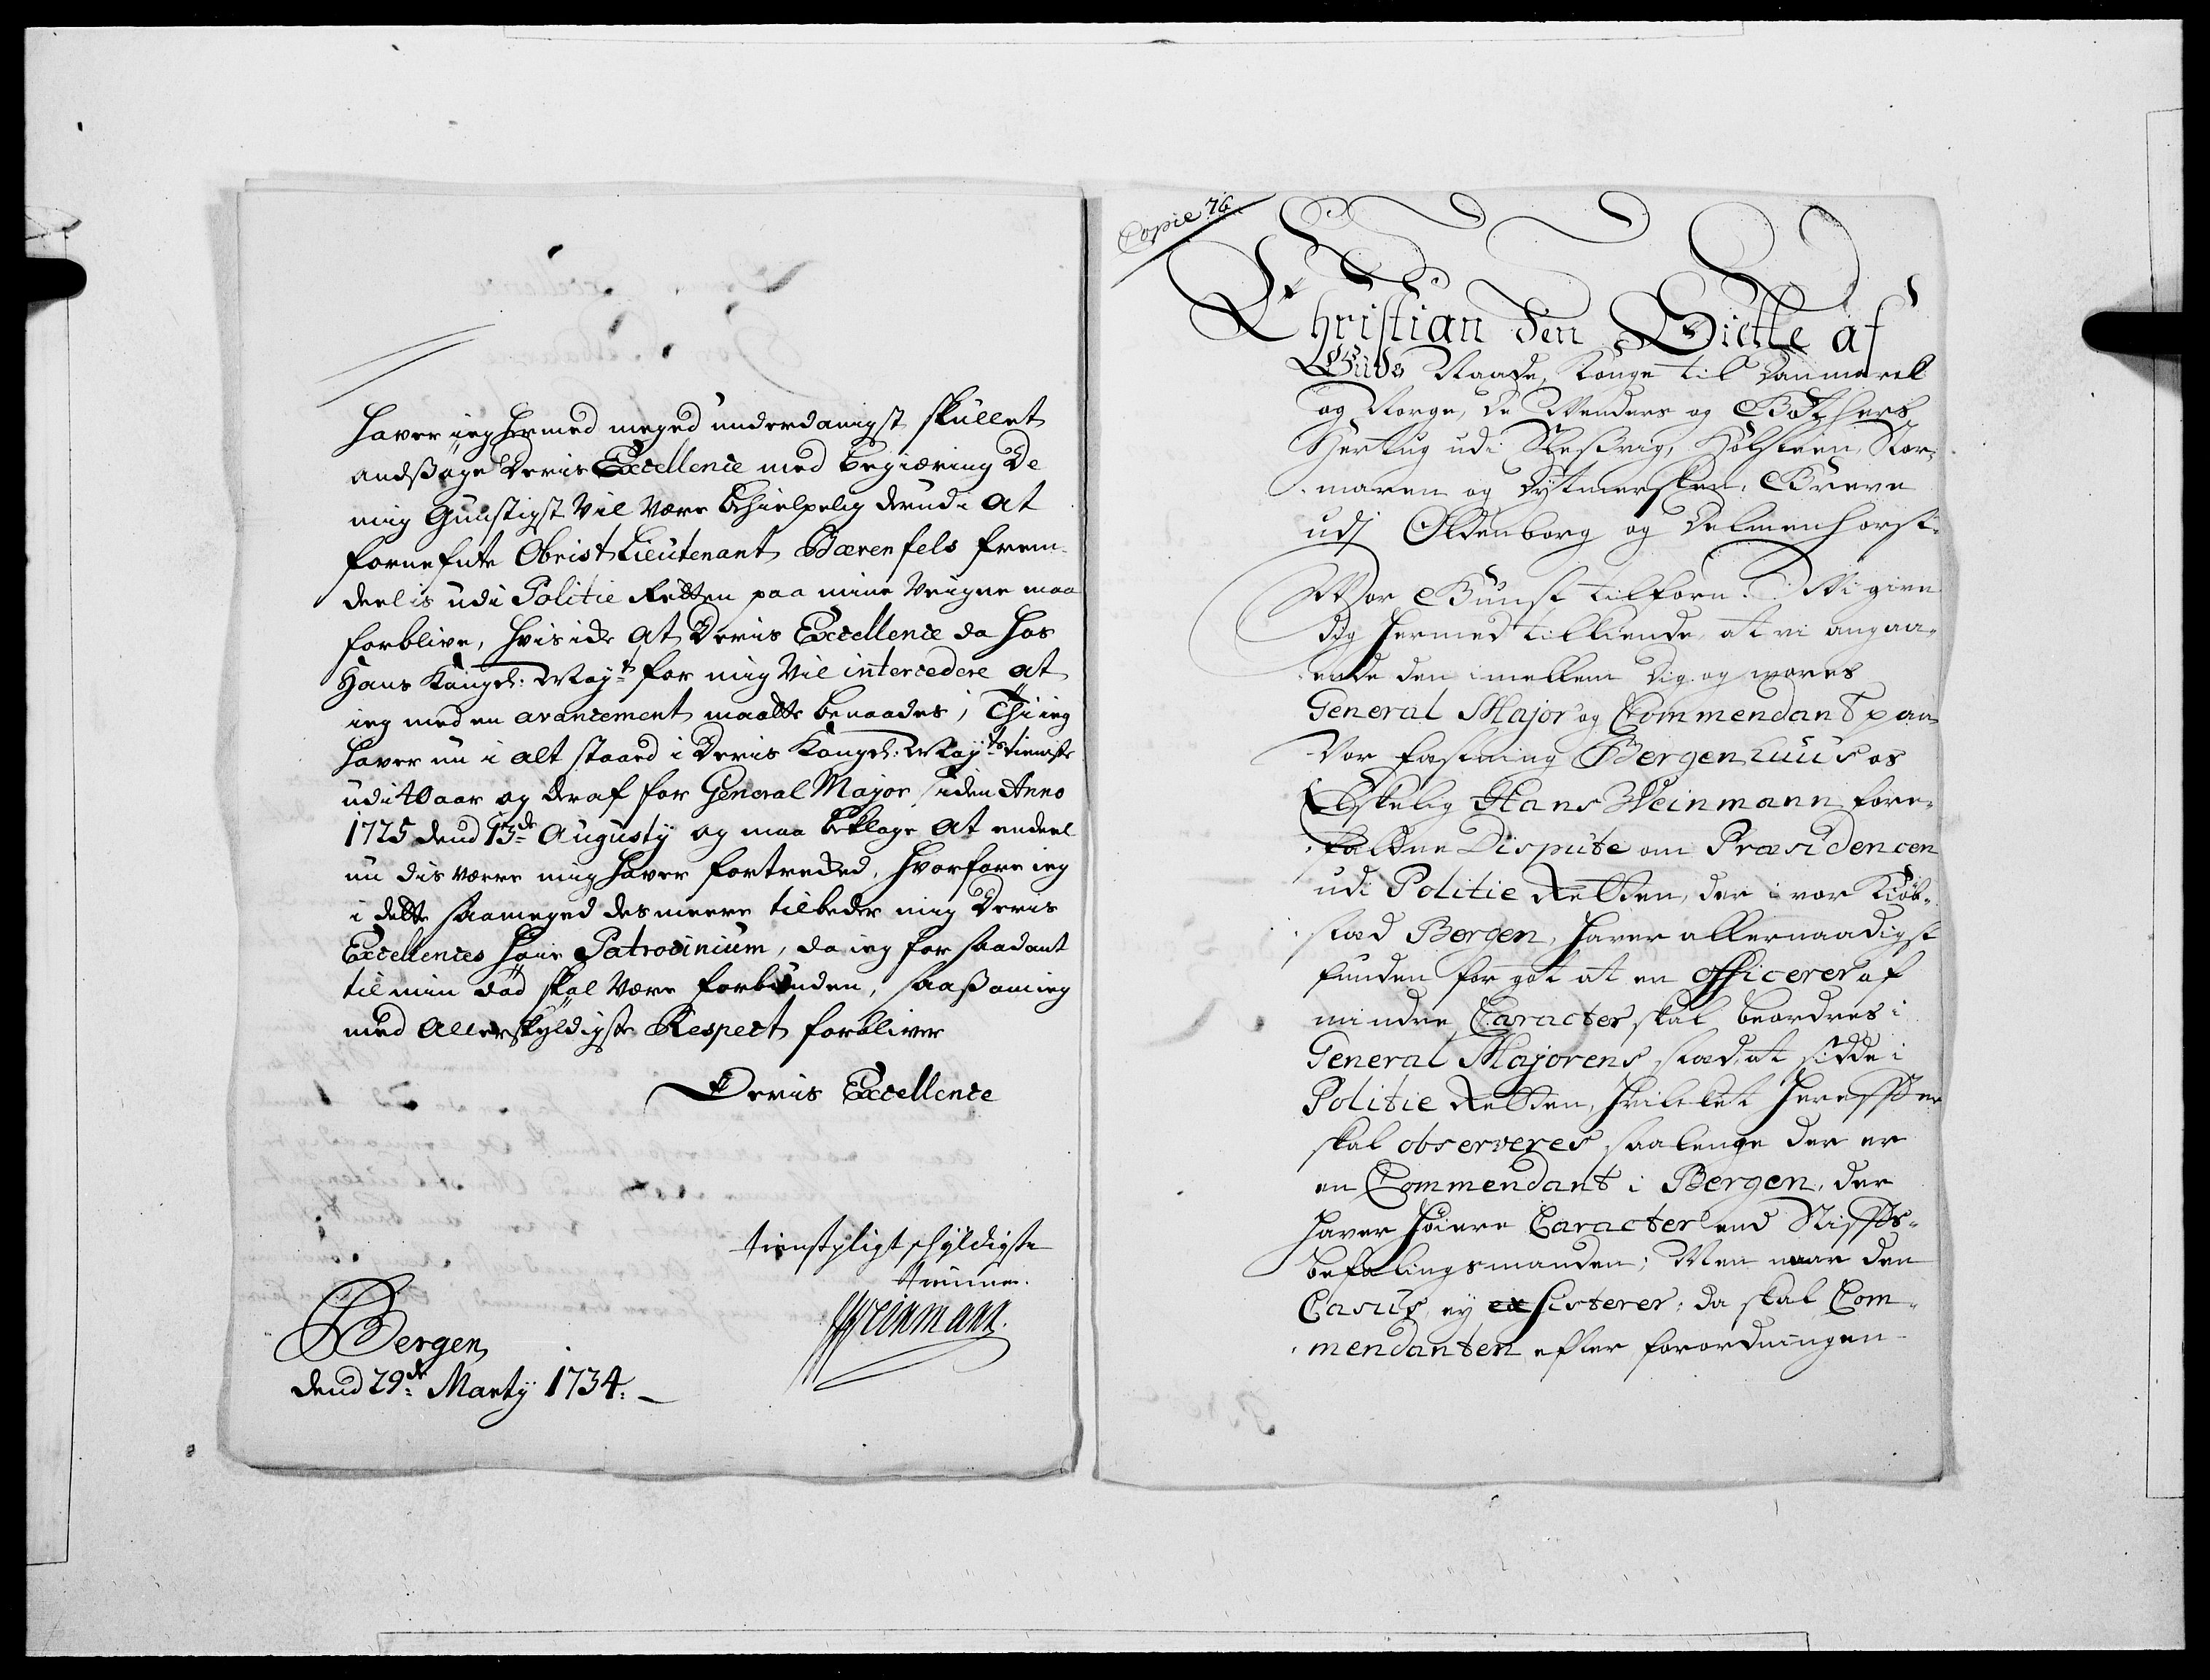 haver ieg hermed meged underdanigst skullet
andßøge Deris Excellence med begiæring De
mig Gunstigst vil være behielpelig derudi at
fornefnte Obrist Lieutenant Bærenfels frem-
deelis udi Politie Retten paa mine Veigne maa
forblive, hvis ide at Deris Excellence da hos
Hans Kongel: Mayt for mig vil intercedere at
ieg med en avancement maatte benaades; Thi ieg
haver nu i alt staaed i Deris Kongel: Mayts tieniste
udi 40 aar og deraf for General Major siden Anno
1725 dend 13de Augusty og maa beklage at endeel
nu dis værre mig haver fortreded, hvorfore ieg
i dette saameged desmeere tilbeder mig Deris
Excellences høie Patrocinium, da ieg for saadant
til min død skal være forbunden, saaßom ieg
med allerskyldigste Respect forbliver
Deris Excellence
tienstpligt skyldigste
tienner.
HWeinmann.
Bergen
dend 29de Marty 1734.
Copie 76.
Christian den Siette af
Guds Naade, Konge til Danmarck
og Norge, de Wenders og Gothers
Hertug udi Slesvig, Holsteen, Stor-
maren og Dytmersken, Greve
udj Oldenborg og Delmenhorst.
Wor Gunst tilforn. Wi give
dig hermed tilkiende, at vi angaa-
ende den imellem dig og vores
General Major og Commendant paa
Vor Fæstning Bergenhuus os
Elskelig Hans Weinmann fore-
faldne Dispute om Præsidencen
udi Politie Retten, der i vor Kiøb-
stad Bergen, haver allernaadigst
funden for got at en officerer af
mindre Caracter skal beordres i
General Majorens sted, at sidde i
Politie Retten, hvilket herefter
skal observeres saalenge der er
en Commendant i Bergen, der
haver høiere Caracter end Stifts-
befalingsmanden; Men naar den
Casus ey existerer; da skal Com-
mendanten efter forordningen